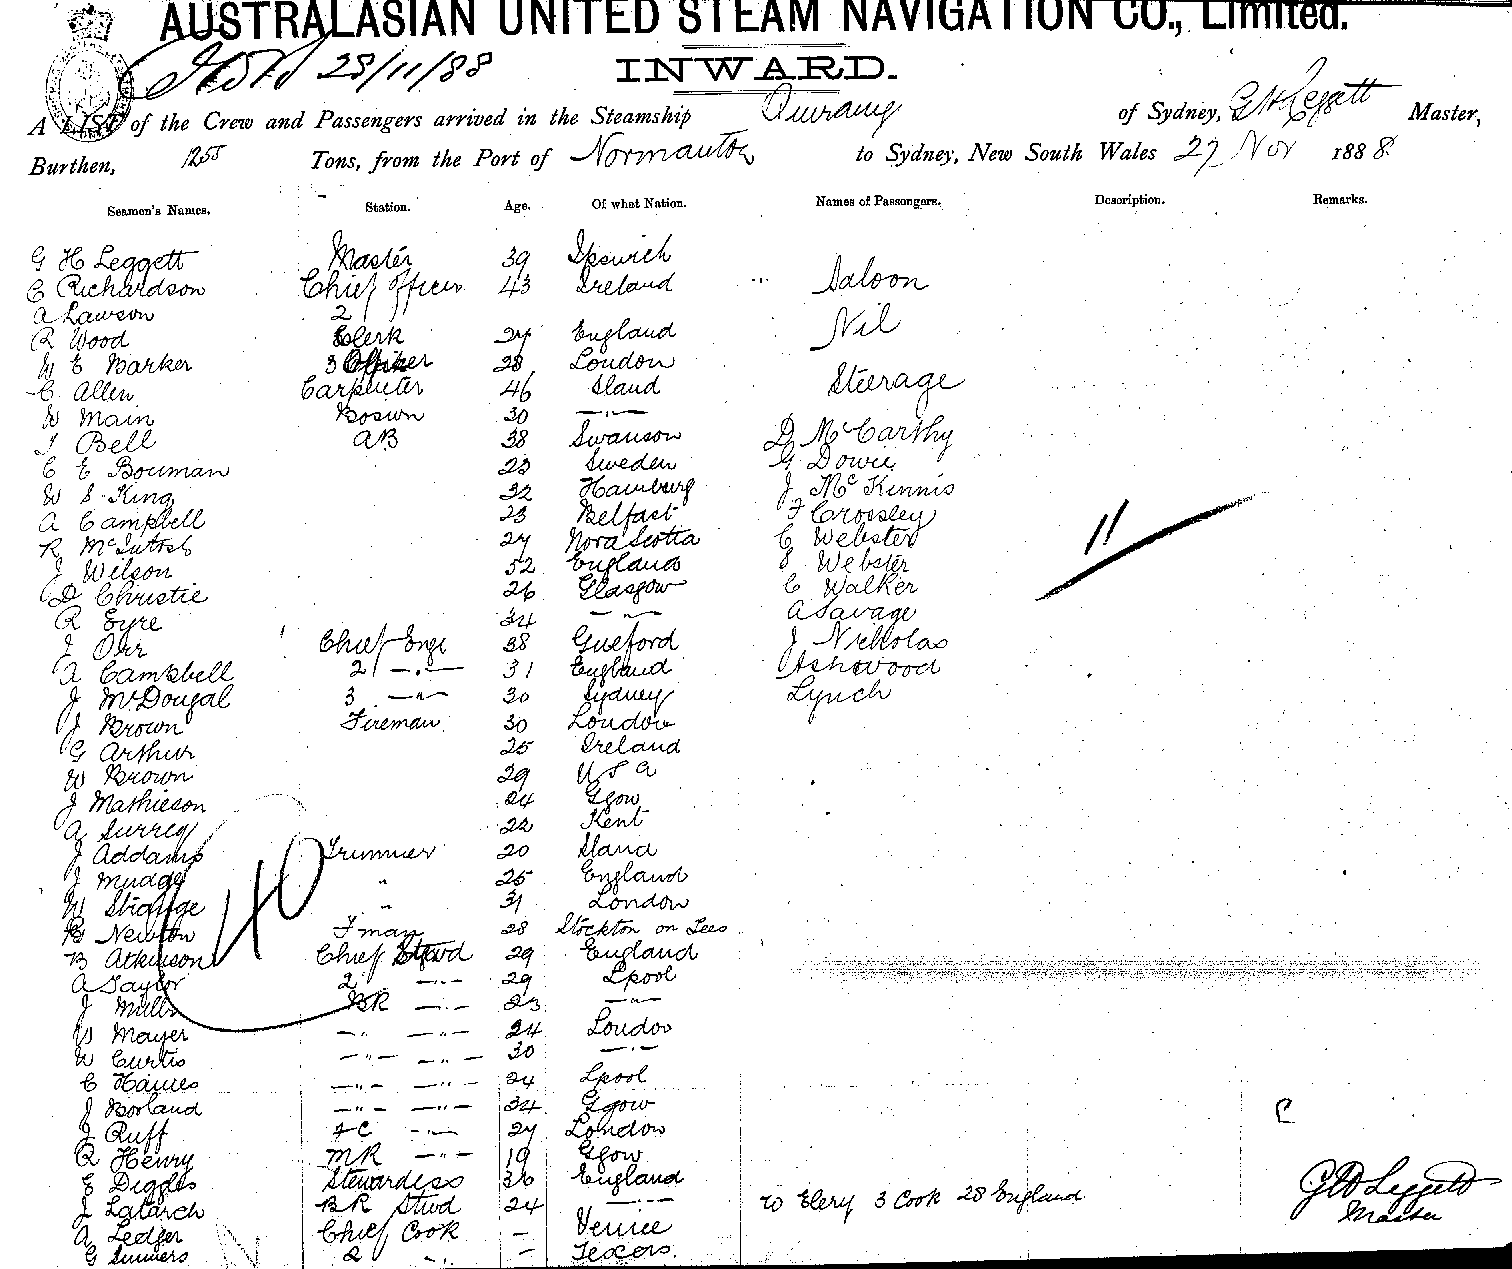 AUSTRALASIAN UNITED STEAM NAVIGATION CO., Limited.
28/11/88 INWARD.
A LIST of the Crew and Passengers arrived in the Steamship of Sydney, G H Leggett Master,
Burthen, 1255 Tons, from the Port of Normanton to Sydney, New South Wales 27 Nov 1888
Seamen's Names. Station. Age. Of what Nation. Names of Passengers. Description. Remarks.
G H Leggett Master 39 Ipswich
C Richardson Chief Officer 43 Ireland Saloon
A Lawson 2
R Wood Clerk 27 England Nil
W E Barker 3 Officer 28 London
C Allen Carpenter 46 Sland Steerage
W Main Bosun 30 —"—
J Bell AB 38 Swanson D McCarthy
C E Bouman 23 Sweden G Dowie
W S King 32 Hamburg J McKinnis
A Campbell 23 Belfast F Crossley
R McIntosh 27 Nova Scotia C Webster 11
J Wilson 52 England S Webster
D Christie 26 Glasgow C Walker
R Eyre 34 —"— A Savage
J Orr Chief Engr 38 J Nickolas
A Campbell 2 —"— 31 England Ashwood
J McDougal 3 —"— 30 Sydney Lynch
J Brown Fireman 30 London
G Arthur 25 Ireland
W Brown 29 U S A
J Mathieson 24 Ggow
A Surrey 22 Kent
J Addams Trimmer 20 Sland
J Mudge " 25 England
W Strange " 31 London
40
B Newton Fman 28 Stockton on Tees
B Atkinson Chief Stwd 29 England
A Taylor 2 —"— 29 Lpool
J Mills BR —"— 23 —"—
W Mayer —"— —"— 24 London
W Curtis —"— —"— 30 —"—
C Haines —"— —"— 24 Lpool
J Borland —"— —"— 34 Ggow
J Ruff FC —"— 27 London
R Henry MR —"— 19 Ggow
E Diggles Stewardess 36 England
J Latarch BR Stwd 24 —"— W Elery 3 Cook 28 England G H Leggett
A Ledger Chief Cook — Venice Master
G Summers 2 " —